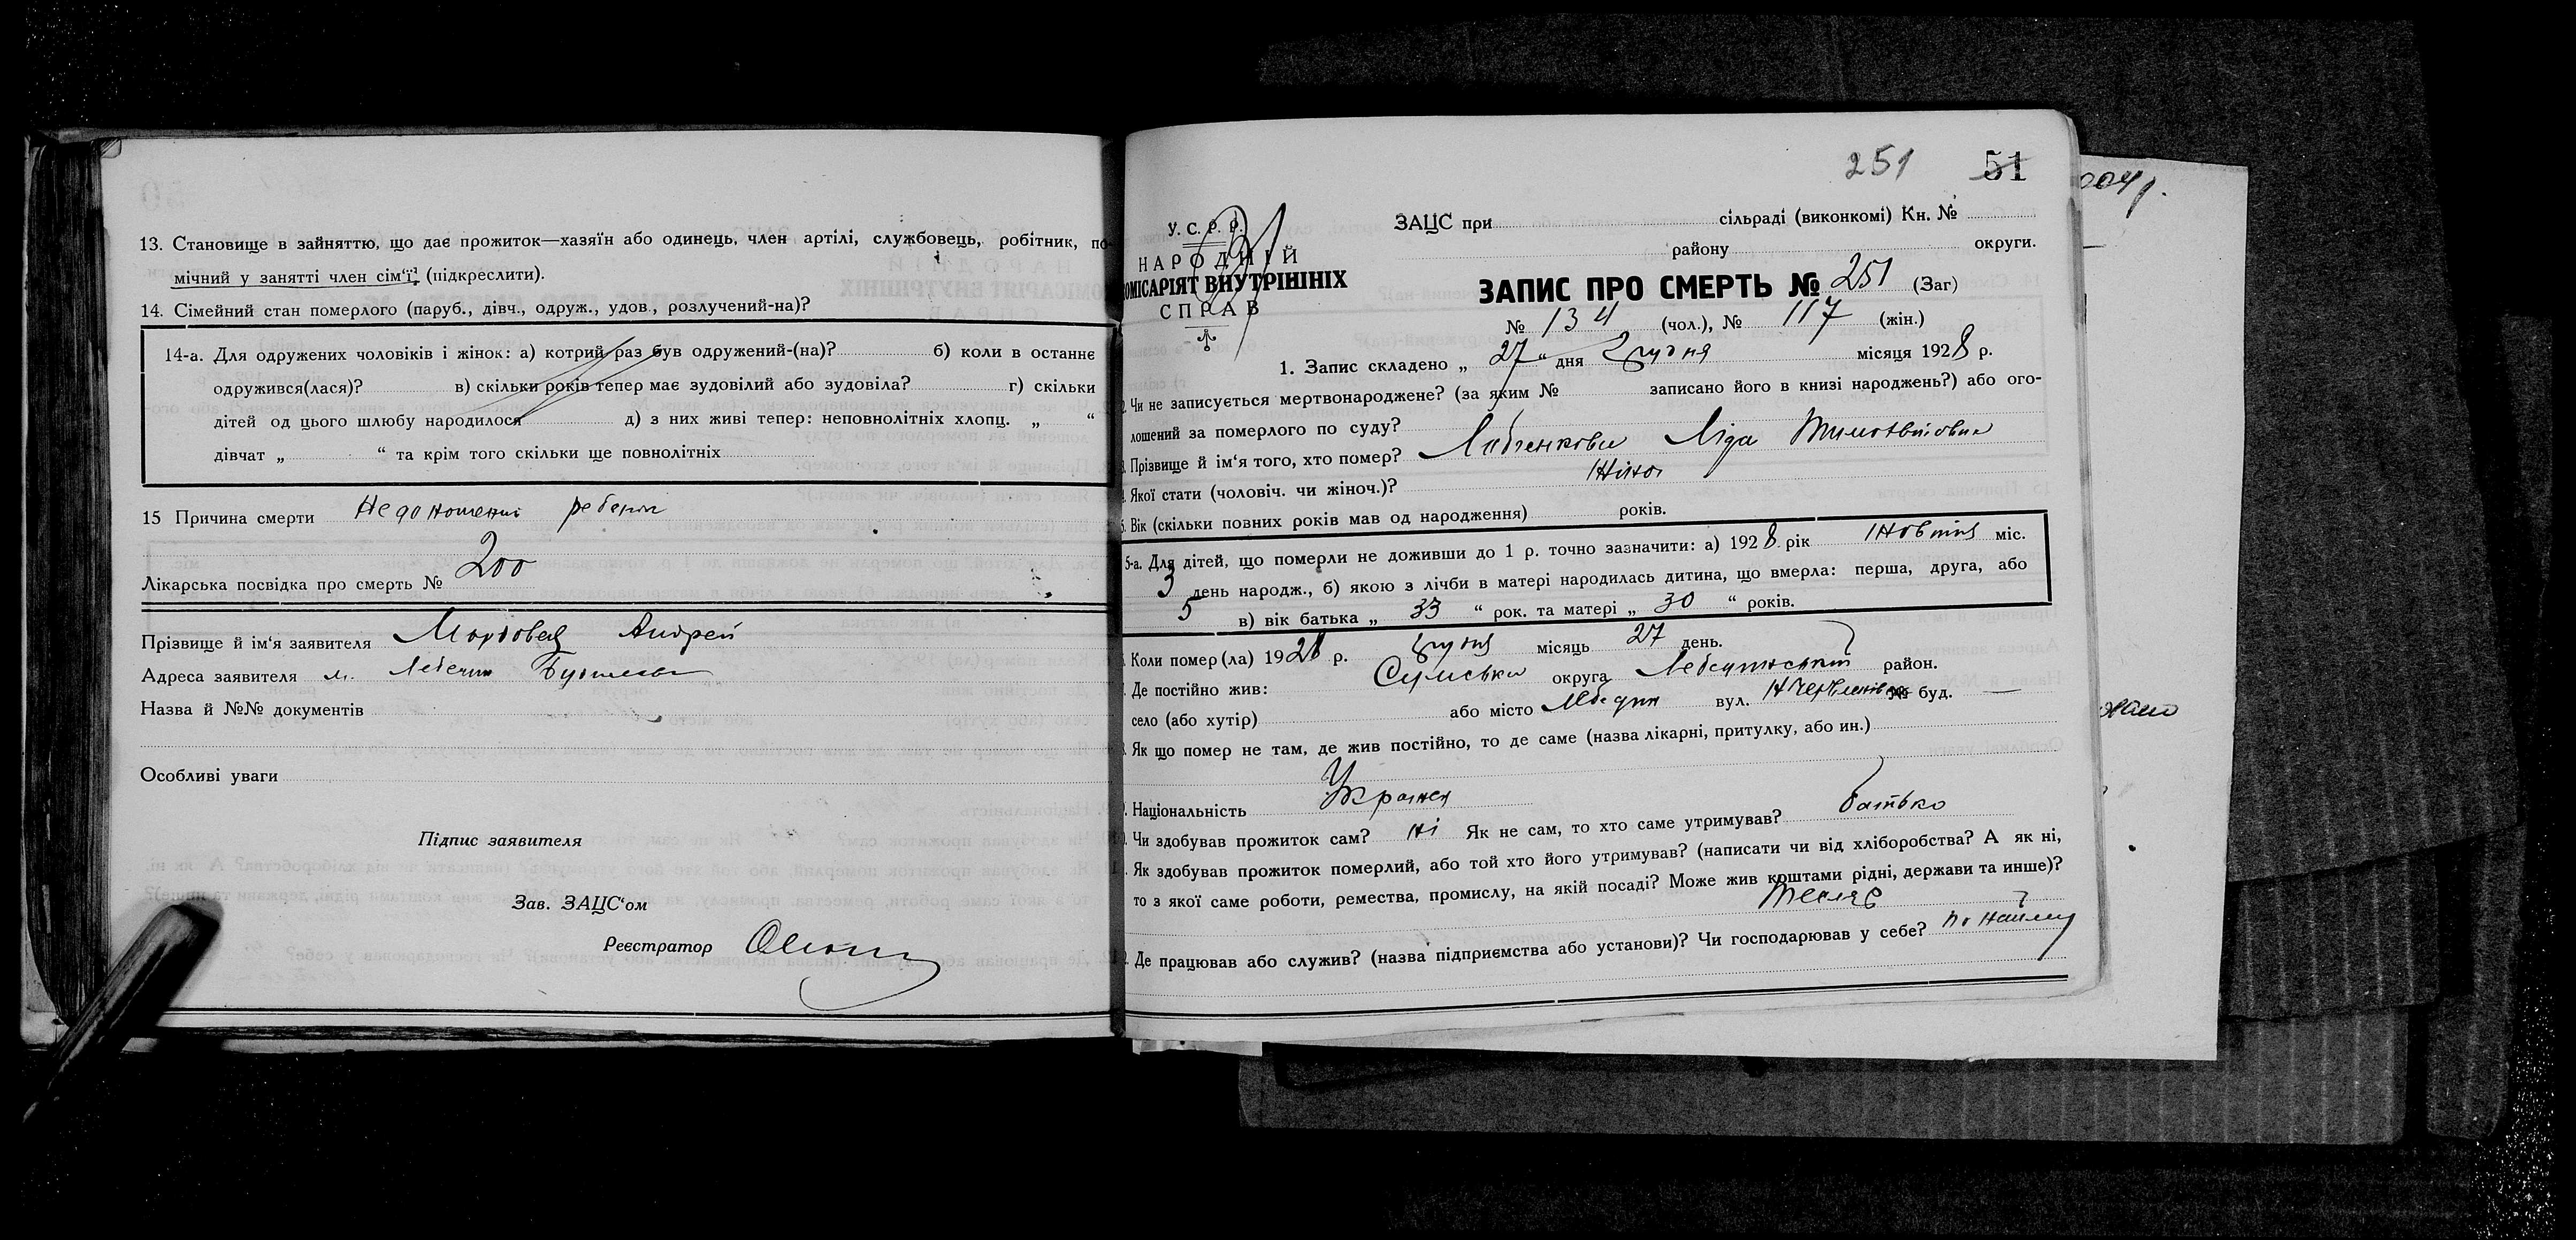 13. Становище в зайняттю, що дає прожиток—хазяїн або одинець, член артілі, службовець, робітник, по-
мічний у занятті член сім'ї, (підкреслити).
14. Сімейний стан померлого (паруб., дівч., одруж., удов., розлучений-на)?
14-а. Для одружених чоловіків і жінок: а) котрий раз був одружений-(на)? б) коли в останнє
одружився(лася)? в) скільки років тепер має зудовілий або зудовіла? г) скільки
дітей од цього шлюбу народилося д) з них живі тепер: неповнолітніх хлопц. „ “
дівчат „ “ та крім того скільки ще повнолітніх
15 Причина смерти Недоношений
Лікарська посвідка про смерть № 200
Прізвище й ім'я заявителя Мордовец Андрей
Адреса заявителя м. Лебедин
Назва й №№ документів
Особливі уваги
Підпис заявителя
Зав. ЗАЦС'ом
Реєстратор
251 51
У. С. Р. Р.
НАРОДНІЙ
ОМІСАРІЯТ ВНУТРІШНІХ
СПРАВ
ЗАЦС при сільраді (виконкомі) Кн. №
району округи.
ЗАПИС ПРО СМЕРТЬ № 251 (Заг)
№ 134 (чол.), № 117 (жін.)
1. Запис складено „ 27 “ дня Грудня місяця 1928 р.
2. Чи не записується мертвонароджене? (за яким № записано його в книзі народжень?) або ого-
лошений за померлого по суду?
3. Прізвище й ім'я того, хто помер? Ліда
4. Якої стати (чоловіч. чи жіноч.)? Жіноч
5. Вік (скільки повних років мав од народження) років.
5-а. Для дітей, що померли не доживши до 1 р. точно зазначити: а) 1928 рік Жовтня міс.
3 день народж., б) якою з лічби в матері народилась дитина, що вмерла: перша, друга, або
5 в) вік батька „ 33 “ рок. та матері „ 30 “ років.
Коли помер(ла) 1928 р. грудня місяць 27 день.
Де постійно жив: Сумська округа Лебединський район.
село (або хутір) або місто Лебедин вул. № буд. —
Як що помер не там, де жив постійно, то де саме (назва лікарні, притулку, або ин.)
Національність Україн
Чи здобував прожиток сам? Ні Як не сам, то хто саме утримував? батько
Як здобував прожиток померлий, або той хто його утримував? (написати чи від хліборобства? А як ні,
то з якої саме роботи, ремества, промислу, на якій посаді? Може жив коштами рідні, держави та инше)?
Тесляр
Де працював або служив? (назва підприємства або установи)? Чи господарював у себе? по найму